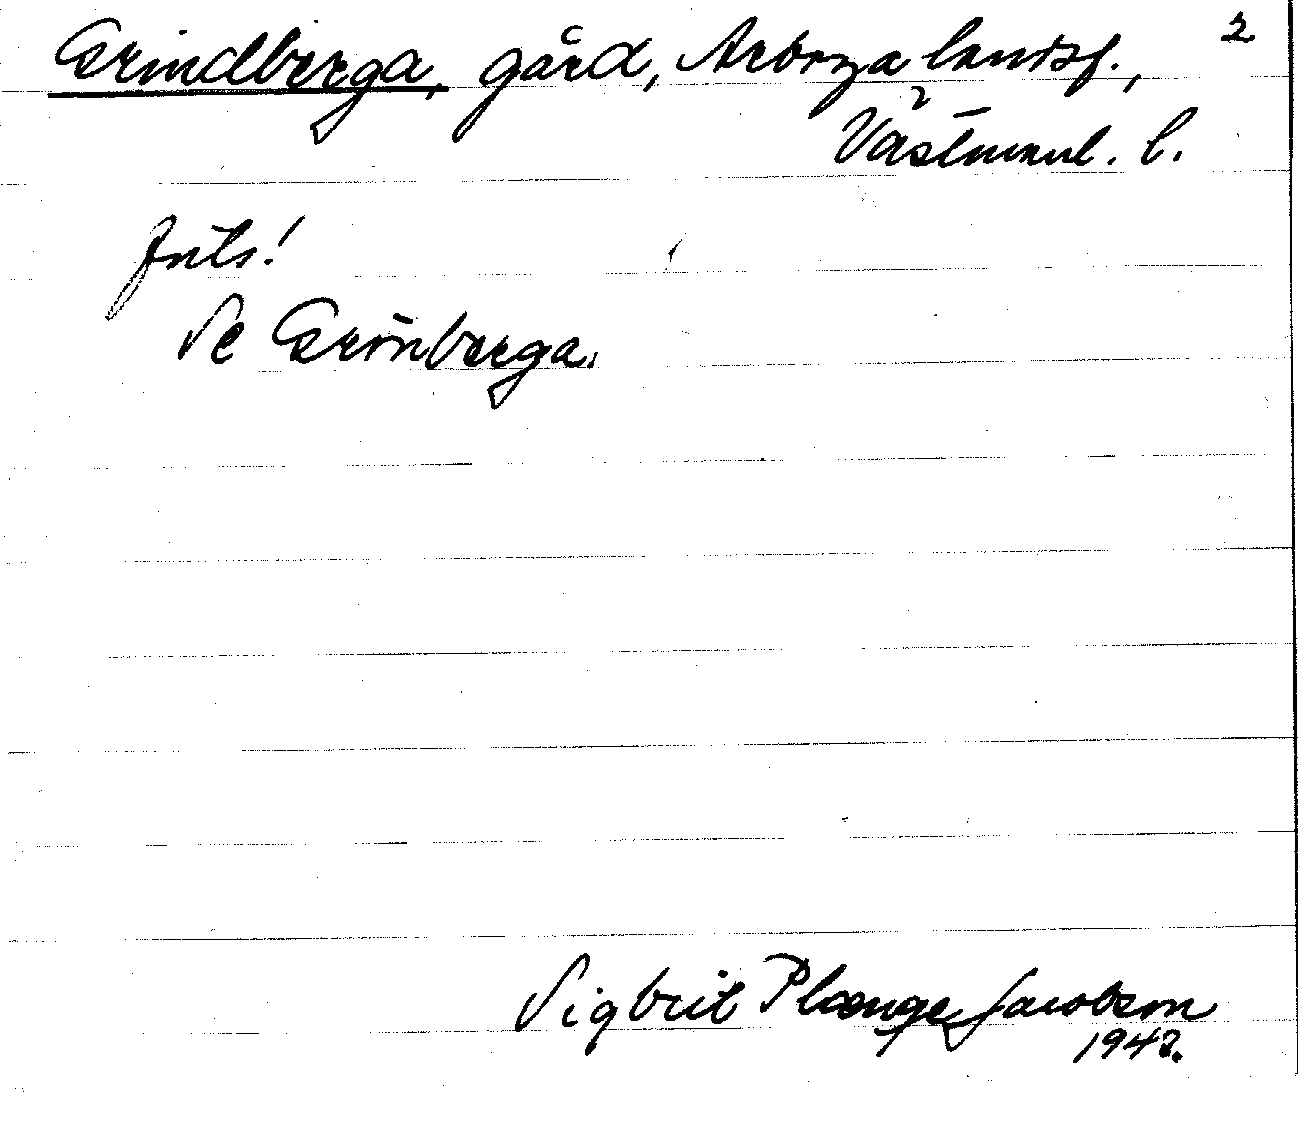 Grindberga, gård, Arboga landsf., 2
Västmanl. l.
Inte!
Se Grönberga.
Sigbrit Plænge Jacobson
1947.